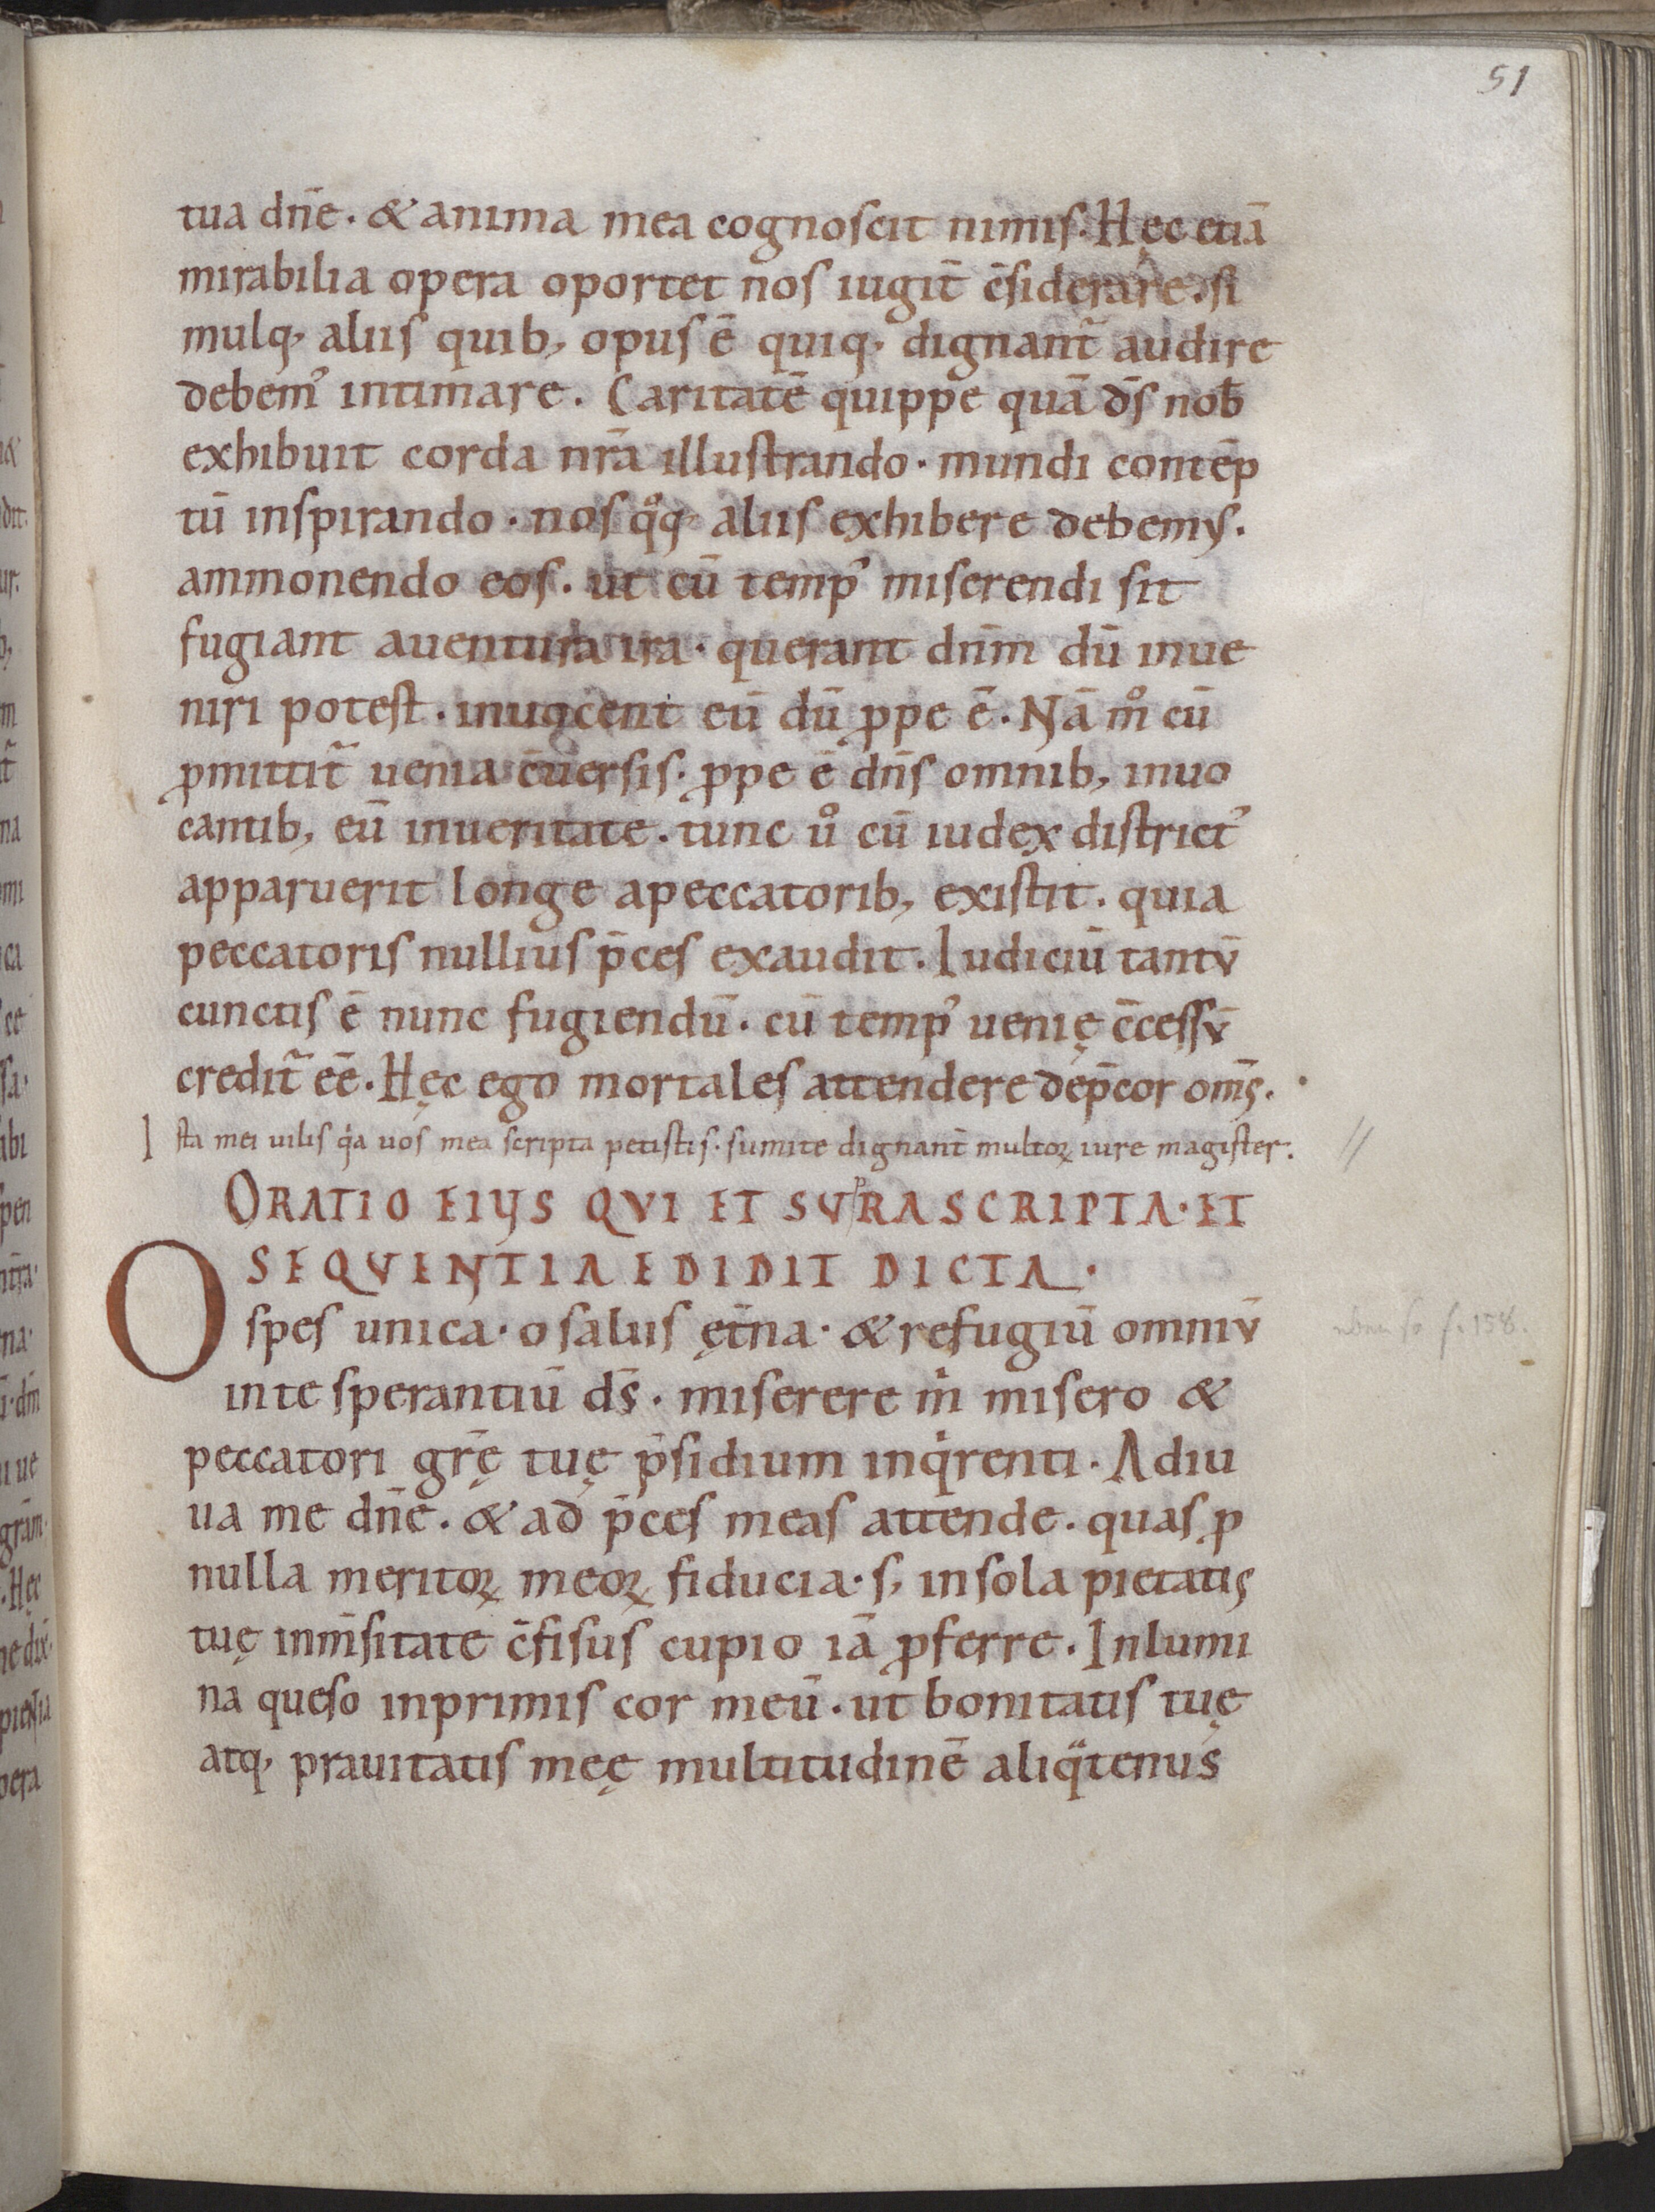 51
tua dn̄e. & anima mea cognoscit nimis. Hęc etiā
mirabilia opera oportet nos iugit̄ c̄siderare. si
mulq; aliis quib; opus ē quiq; dignant̄ audire
debem᾿ intimare. Caritatē quippe quā d̄s nob̄
exhibuit corda nr̄a illustrando. mundi contēp
tū inspirando. nos qͦq; aliis exhibere debemus.
ammonendo eos. ut cū temp᾿ miserendi sit
fugiant auentura ira. querant dn̄m dū inue
niri potest. inuocent eū dū ꝓpe ē. Nā mͦ cū
ꝓmittit̄ uenia c̄uersis. ꝓpe ē dn̄s omnib; inuo
cantib; eū inueritate. tunc uͦ cū iudex district᾿
apparuerit longe apeccatorib; existit. quia
peccatoris nullius p̄ces exaudit. Iudiciū tantū
cunctis ē nunc fugiendū. cū temp᾿ uenię c̄cessū
credit̄ eē. Hęc ego mortales attendere dep̄cor om̄s.
Ista mei uilis qⁱa uos mea scripta petistis. sumite dignant̄ multoꝝ iure magister.
ORATIO EIUS QVI ET SVPRASCRIPTA. ET
SEQVENTIA EDIDIT DICTA.
O spes unica. o salus ęt̄na. & refugiū omniū
in te sperantiū d̄s. miserere mⁱ misero &
peccatori gr̄ę tuę p̄sidium inqⁱrenti. Adiu
ua me dn̄e. & ad p̄ces meas attende. quas ꝓ
nulla meritoꝝ meoꝝ fiducia. s; in sola pietatis
tuę inm̄sitate c̄fisus cupio iā ꝓferre. Inlumi
na queso inprimis cor meū. ut bonitatis tuę
atq; prauitatis meę multitudinē aliqᵃtenus